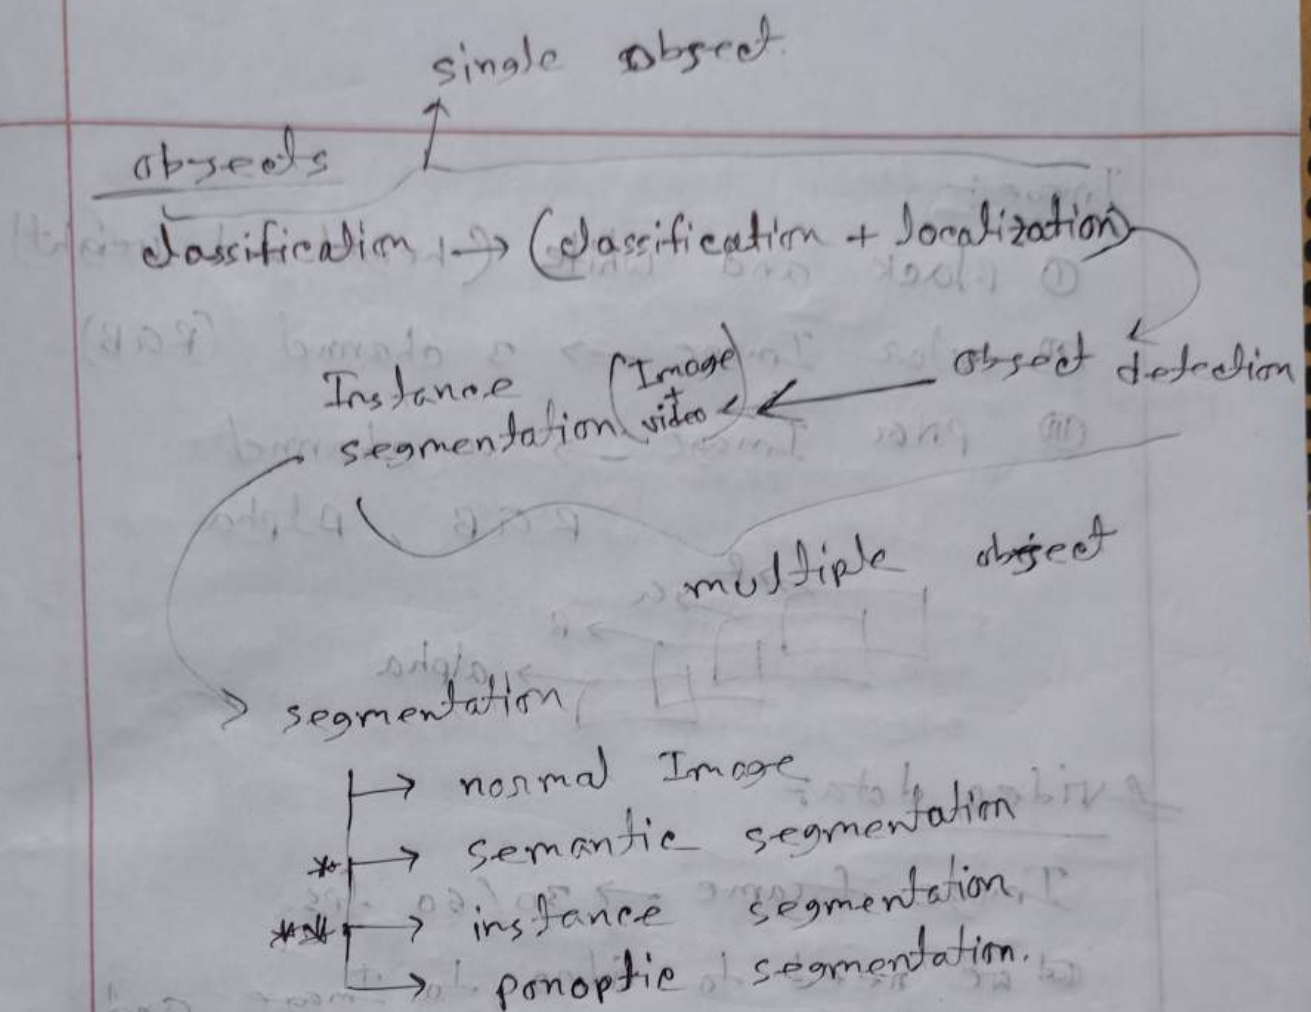 single object.
objects
classification → (classification + localization)
object detection
Instance segmentation (Image + video)
multiple object
segmentation
→ normal Image
* → semantic segmentation
** → instance segmentation,
→ panoptic segmentation.